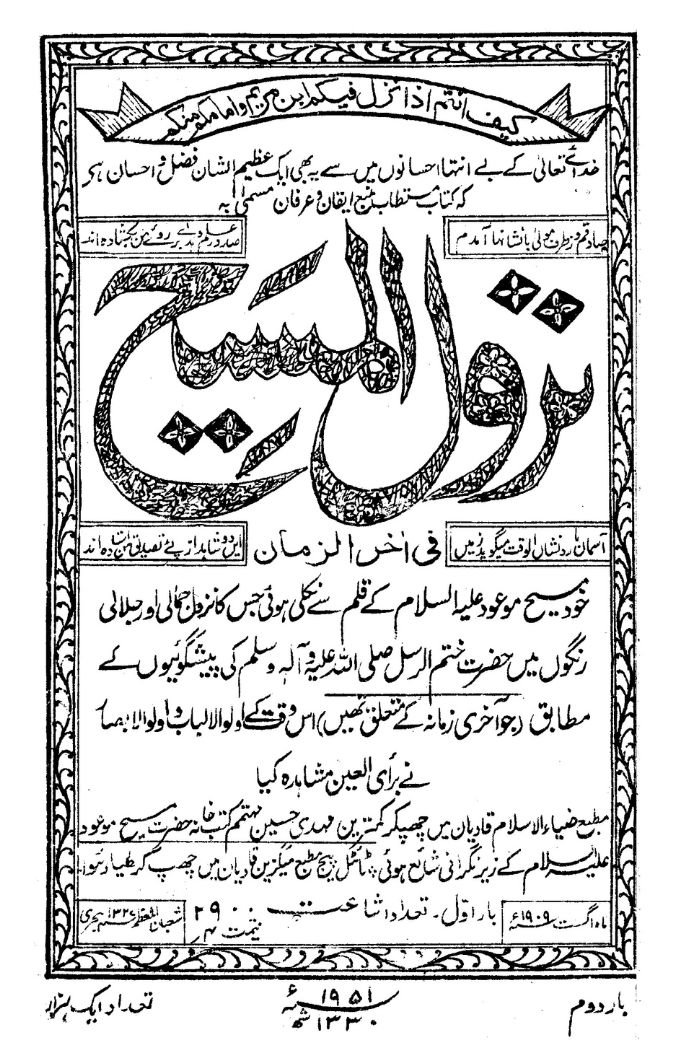 کیف انتم اذا نزل فیکم ابن مریم واما مکم منکم
خدائے تعالیٰ کے بے انتہا احسانوں میں سے یہ بھی ایک عظیم الشان فضل و احسان ہے
کہ کتاب مستطاب منبع ایقان و عرفان مسمیٰ بہ
صادقم و از طرف مولیٰ با نشانہا آمدم
صد در علم و ہدیٰ بر روئے من بکشادہ اند
نزول المسیح
آسمان بارد نشان الوقت میگوید زمیں
فی اٰخر الزمان
ایں دو شاہد از پئے تصدیق من استادہ اند
خود مسیح موعود علیہ السلام کے قلم سے نکلی ہوئی جس کا نزول جمالی اور جلالی
رنگوں میں حضرت ختم الرسل صلی اللہ علیہ و آلہ وسلم کی پیشگوئیوں کے
مطابق (جو آخری زمانہ کے متعلق تھیں) اس وقت کے اولوالالباب و اولوالابصار
نے برأی العین مشاہدہ کیا
مطبع ضیاء الاسلام قادیان میں چھپکر کمترین مہدی حسین مہتمم کتب خانہ حضرت مسیح موعود
علیہ السلام کے زیر نگرانی شائع ہوئی ٹائٹل پیج مطبع میگزین قادیان میں چھپ کر طیار ہوا
ماہ اگست ۱۹۰۹ء
بار اوّل - تعداد اشاعت ۲۹۰۰
قیمت
شعبان المعظم ۱۳۲۷ ہجری
بار دوم
۱۹۵۱ء
۱۳۳۰ ھش
تعداد ایک ہزار